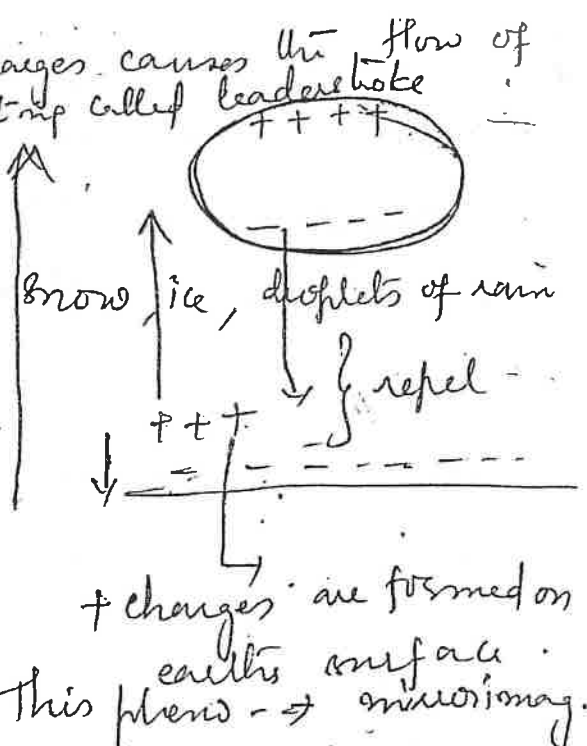 causes the flow of
called leader stroke
+ + + +
- - - -
snow, ice, droplets of rain
} repel -
+ + +
- - - - - -
+ charges are formed on
earths surface.
This pheno - → mirror imag.